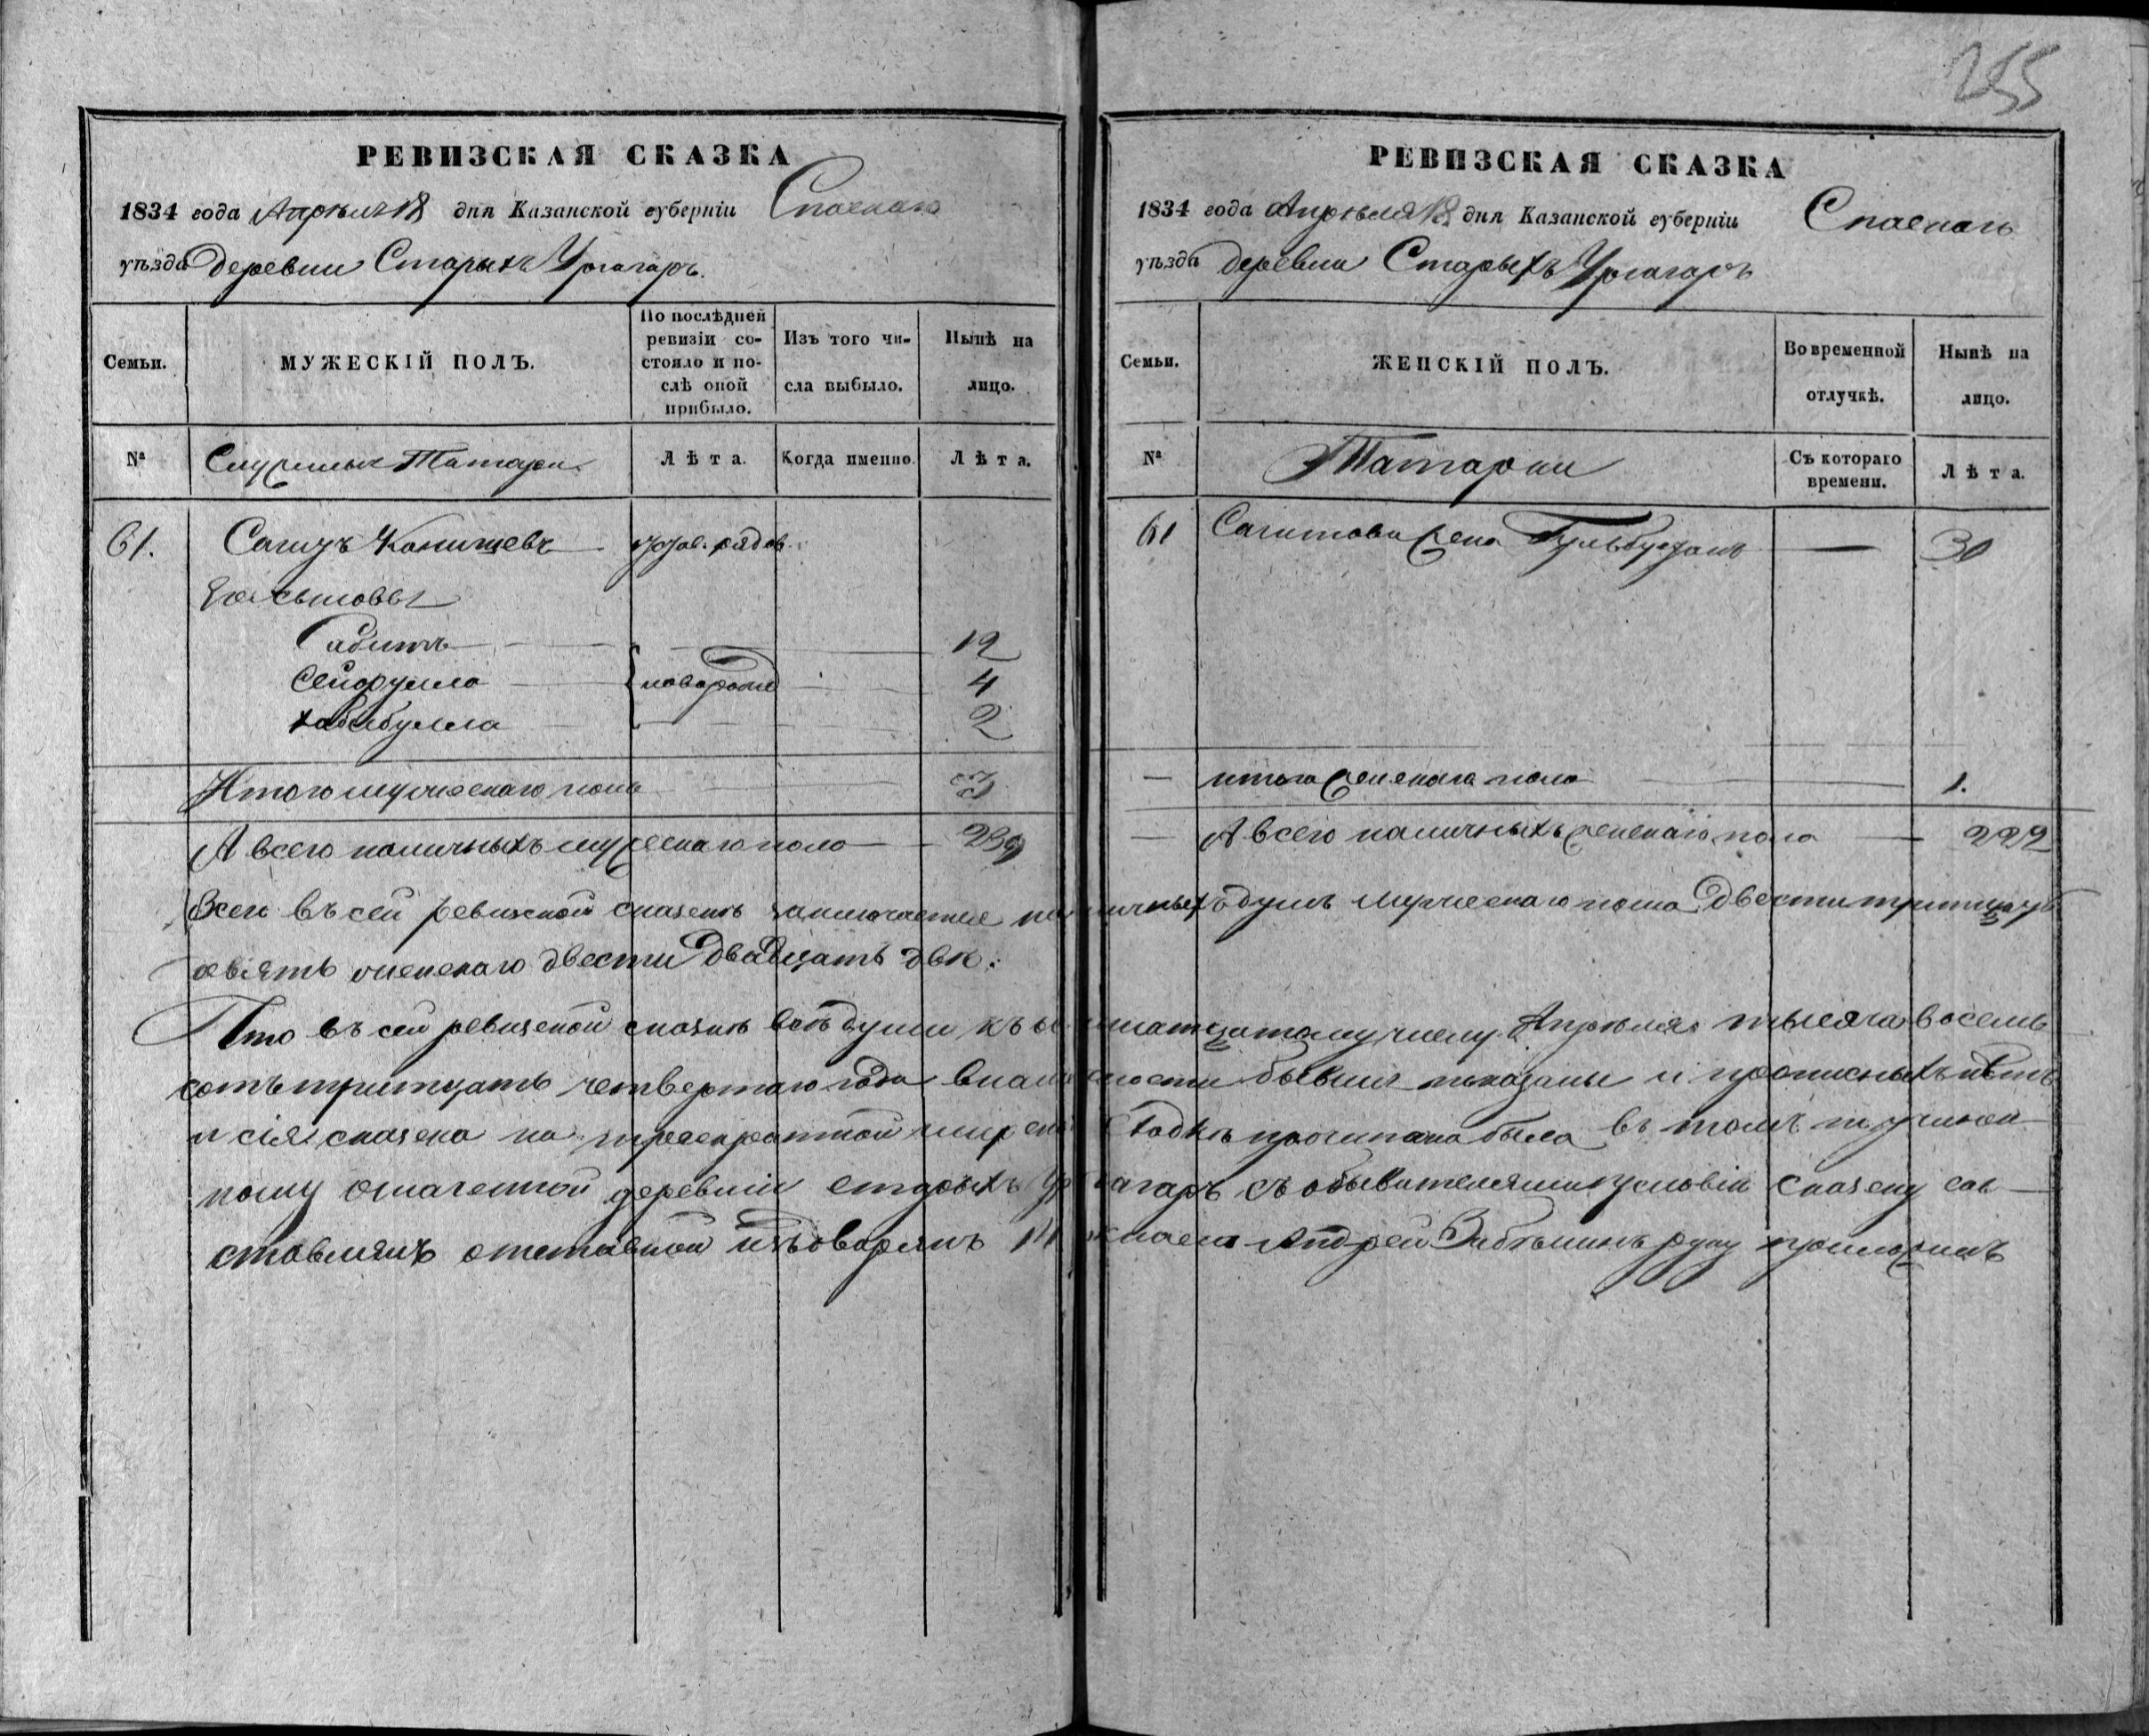 255
РЕВИЗСКАЯ СКАЗКА
1834 года Апрѣля 18 дня Казанской губерніи Спаскаго
уѣзда деревни Старыхъ Ургагаръ.
Семьи.
МУЖЕСКІЙ ПОЛЪ.
По послѣдней ревизіи состояло и послѣ оной прибыло.
Изъ того числа выбыло.
Нынѣ на лицо.
№
Служилыя Татары
Лѣта.
Когда именно.
Лѣта.
61.
его сыновья
Габитъ 12
Сейфулла новорожд 4
Хабибулла 2
Итого мужескаго пола 3
А всего наличныхъ мужескаго пола 239
РЕВИЗСКАЯ СКАЗКА
1834 года Апрѣля 18 дня Казанской губерніи Спаскаго
уѣзда деревни Старыхъ Ургагаръ
Семьи.
ЖЕНСКІЙ ПОЛЪ.
Во временной отлучкѣ.
Нынѣ на лицо.
№
Татарки
Съ котораго времени.
Лѣта.
61 Сагитова жена 30
итого женскаго пола 1.
А всего наличныхъ женскаго пола 222
Всего въ сей ревизской сказкѣ заключается наличныхъ душъ мужескаго пола двести тритцать
девять женскаго двести двадцать двѣ.
Что въ сей ревизской сказкѣ всѣ души къ осмнатцатому числу Апрѣля тысяча восемь
сотъ тритцать четвертаго года в наличности бывшія показаны и прописныхъ нѣтъ
и сія сказка на троекратной мирской сходкѣ прочитана была въ томъ
означенной деревни старыхъ Ургагаръ съ обывателями сказку со
ставлялъ отставной изъ дворянъ Андрей руку приложилъ